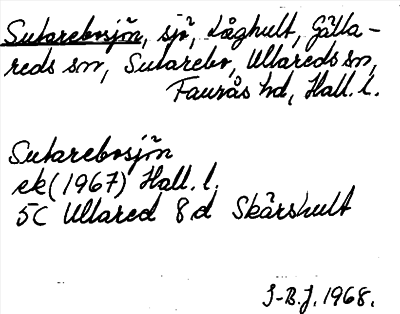 Sutarebosjön, sjö, Låghult, Gälla-
reds sn, Sutarebo, Ullareds sn,
Faurås hd, Hall. l.
Sutarebosjön
ek (1967) Hall. l.
5C Ullared 8d Skårshult
S-B.J. 1968.